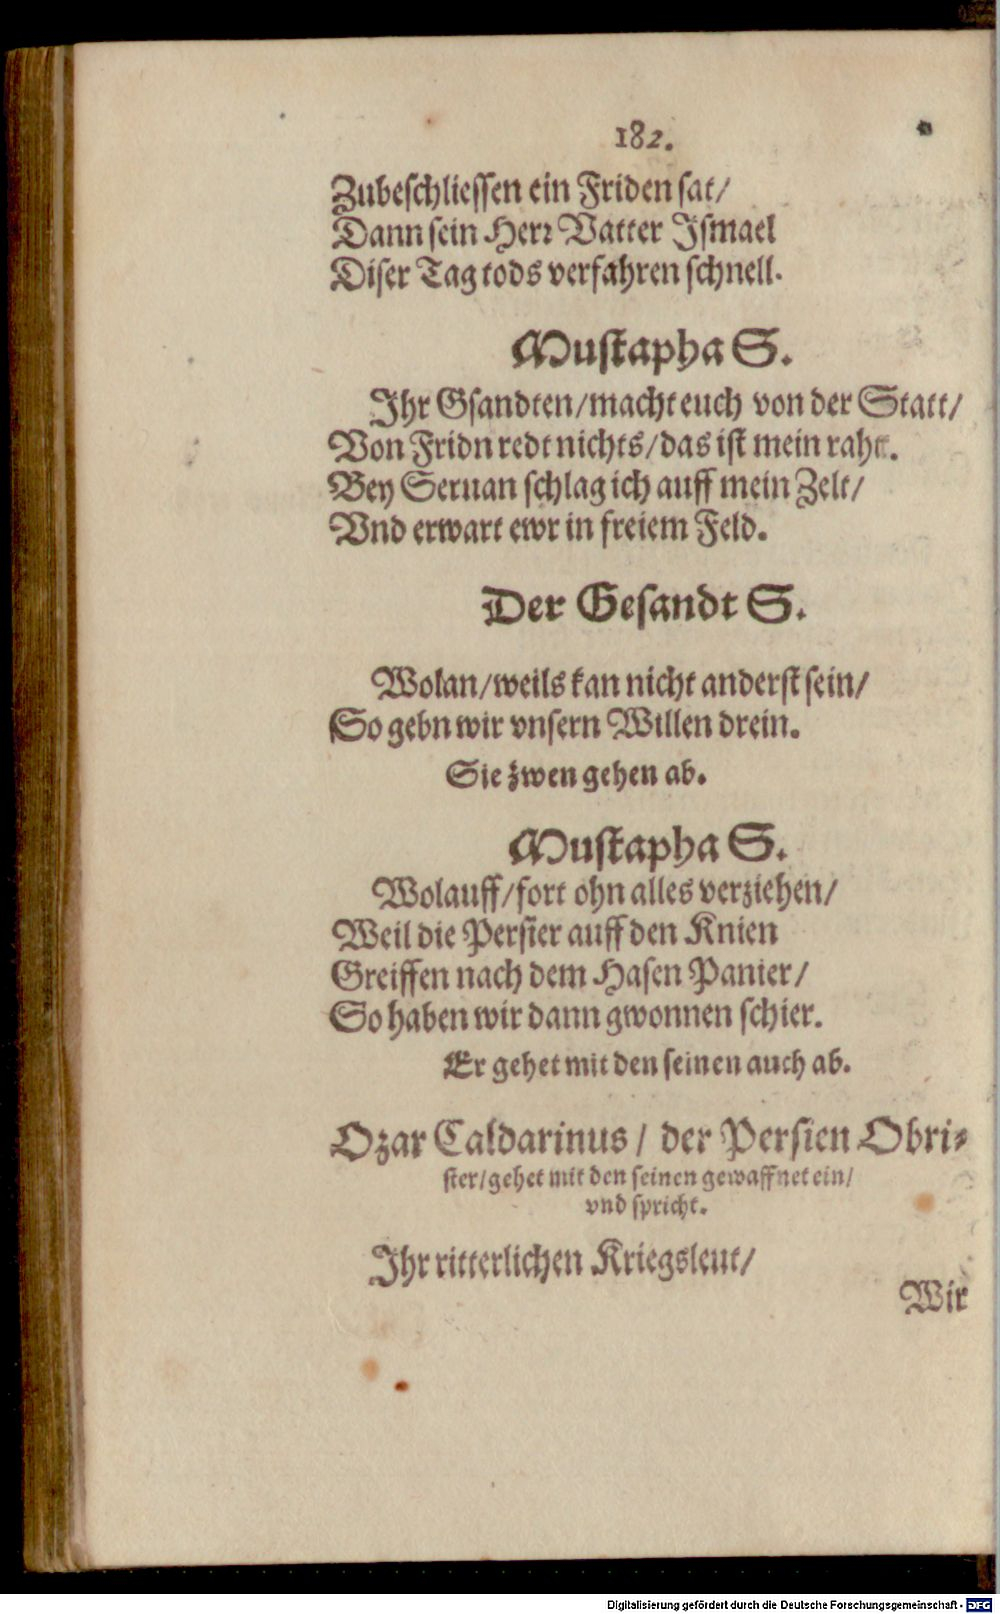 182.
Zubeschliessen ein Friden sat/
Dann sein Herr Vatter Ismael
Diser Tag tods verfahren schnell.
Mustapha S.
Ihr Gsandten/macht euch von der Statt/
Von Fridn redt nichts/das ist mein raht.
Bey Seruan schlag ich auff mein Zelt/
Vnd erwart ewr in freiem Feld.
Der Gesandt S.
Wolan/weils kan nicht anderst sein/
So gebn wir vnsern Willen drein.
Sie zwen gehen ab.
Mustapha S.
Wolauff/fort ohn alles verziehen/
Weil die Persier auff den Knien
Greiffen nach dem Hasen Panier/
So haben wir dann gwonnen schier.
Er gehet mit den seinen auch ab.
Ozar Caldarinus/ der Persien Obri-
ster/gehet mit den seinen gewaffnet ein/
vnd spricht.
Ihr ritterlichen Kriegsleut/
Wir
Digitalisierung gefördert durch die Deutsche Forschungsgemeinschaft - DFG